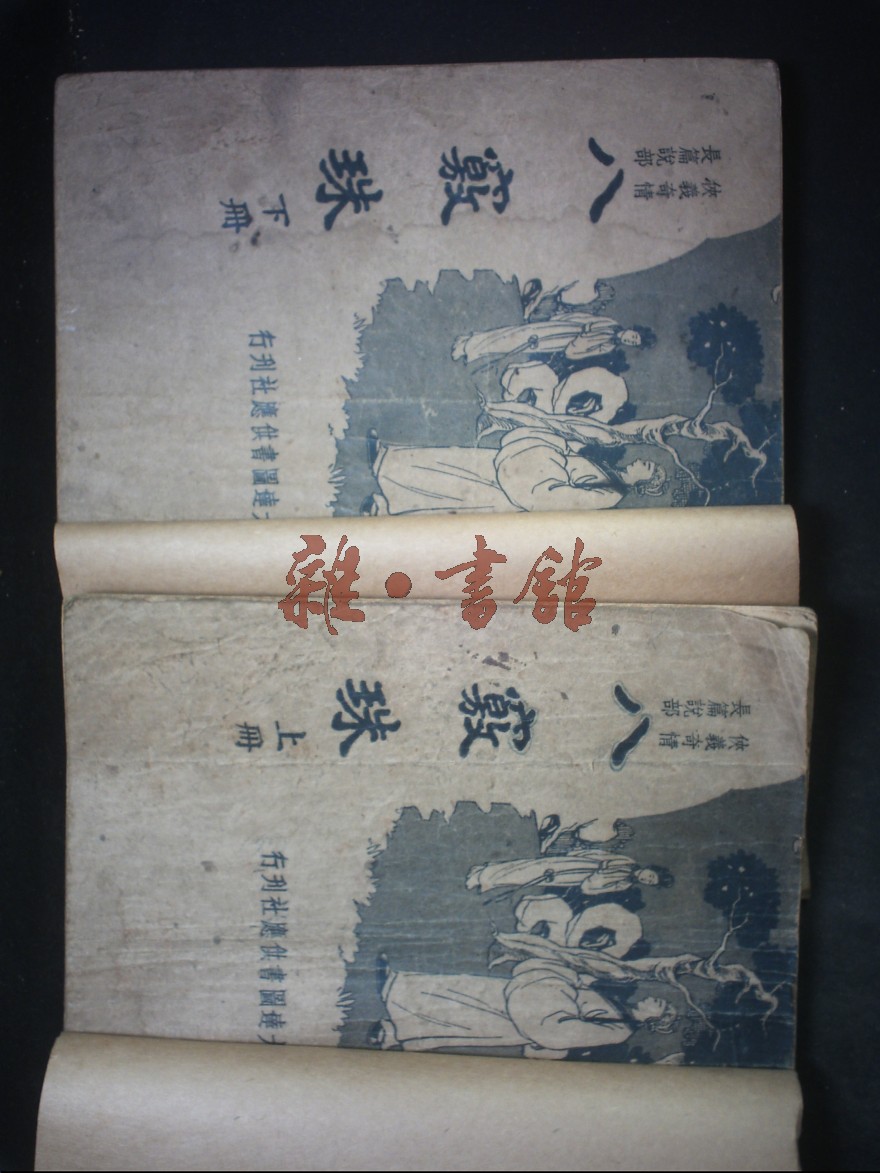 俠義奇情
長篇說部
八竅珠
下冊
達圖書供應社刊行
雜·書館
俠義奇情
長篇說部
八竅珠
上冊
達圖書供應社刊行